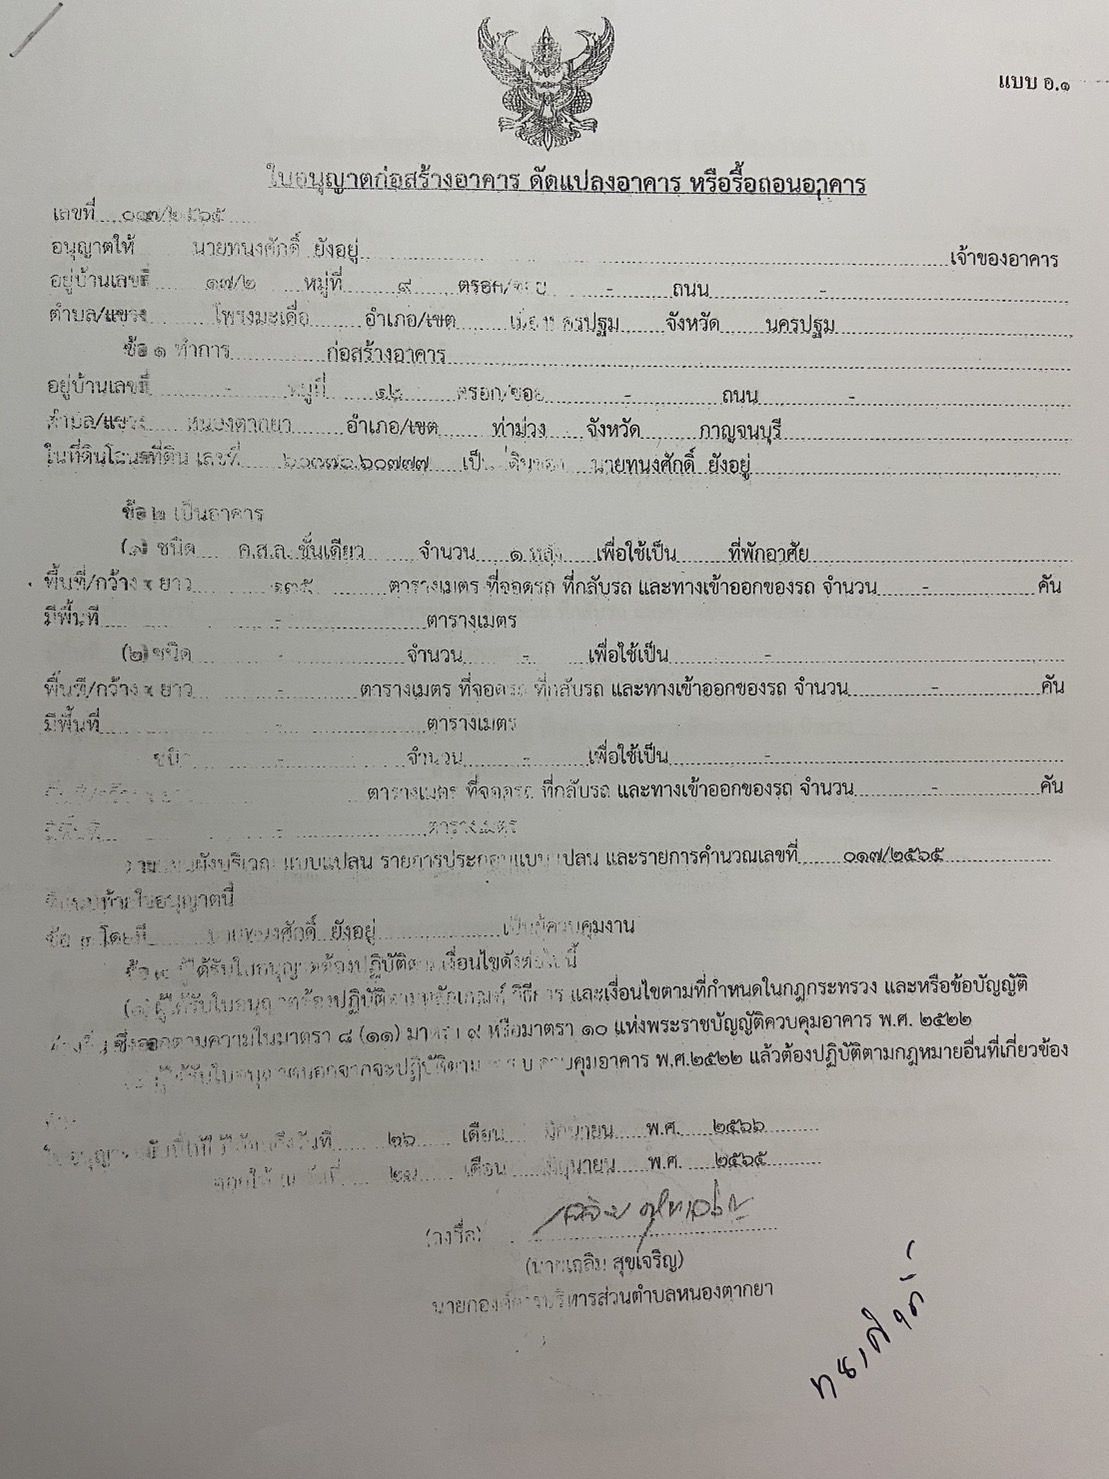 แบบ อ.๑
ใบอนุญาตก่อสร้างอาคาร ดัดแปลงอาคาร หรือรื้อถอนอาคาร
เลขที่ ๐๑๗/๒๕๖๕
อนุญาตให้ นายทนงศักดิ์ ยังอยู่ เจ้าของอาคาร
อยู่บ้านเลขที่ ๑๗/๒ หมู่ที่ ๙ ตรอก/ซอย - ถนน -
ตำบล/แขวง โพรงมะเดื่อ อำเภอ/เขต เมืองนครปฐม จังหวัด นครปฐม
ข้อ ๑ ทำการ ก่อสร้างอาคาร
อยู่บ้านเลขที่ - หมู่ที่ ๑๒ ตรอก/ซอย - ถนน -
ตำบล/แขวง หนองตากยา อำเภอ/เขต ท่าม่วง จังหวัด กาญจนบุรี
ในที่ดินโฉนดที่ดิน เลขที่ เป็นที่ดินของ นายทนงศักดิ์ ยังอยู่
ข้อ ๒ เป็นอาคาร
(๑) ชนิด ค.ส.ล. ชั้นเดียว จำนวน ๑ หลัง เพื่อใช้เป็น ที่พักอาศัย
พื้นที่/กว้าง x ยาว ๑๓๕ ตารางเมตร ที่จอดรถ ที่กลับรถ และทางเข้าออกของรถ จำนวน - คัน
มีพื้นที่ - ตารางเมตร
(๒) ชนิด - จำนวน - เพื่อใช้เป็น -
พื้นที่/กว้าง x ยาว - ตารางเมตร ที่จอดรถ ที่กลับรถ และทางเข้าออกของรถ จำนวน - คัน
มีพื้นที่ - ตารางเมตร
ชนิด - จำนวน - เพื่อใช้เป็น -
พื้นที่/กว้าง x ยาว ตารางเมตร ที่จอดรถ ที่กลับรถ และทางเข้าออกของรถ จำนวน - คัน
มีพื้นที่ - ตารางเมตร
ตามแผนผังบริเวณ แบบแปลน รายการประกอบแบบแปลน และรายการคำนวณเลขที่ ๐๑๗/๒๕๖๕
ที่แนบท้ายใบอนุญาตนี้
ข้อ ๓ โดยมี นายทนงศักดิ์ ยังอยู่ เป็นผู้ควบคุมงาน
ข้อ ๔ ผู้ได้รับใบอนุญาตต้องปฏิบัติตามเงื่อนไขดังต่อไปนี้
(๑) ผู้ได้รับใบอนุญาตต้องปฏิบัติตามหลักเกณฑ์ วิธีการ และเงื่อนไขตามที่กำหนดในกฎกระทรวง และหรือข้อบัญญัติ
ท้องถิ่น ซึ่งออกตามความในมาตรา ๘ (๑๑) มาตรา ๙ หรือมาตรา ๑๐ แห่งพระราชบัญญัติควบคุมอาคาร พ.ศ. ๒๕๒๒
ผู้ได้รับใบอนุญาตนอกจากจะปฏิบัติตาม ควบคุมอาคาร พ.ศ.๒๕๒๒ แล้วต้องปฏิบัติตามกฎหมายอื่นที่เกี่ยวข้อง
ด้วย
ใบอนุญาตฉบับนี้ให้ใช้ได้จนถึงวันที่ ๒๖ เดือน มิถุนายน พ.ศ. ๒๕๖๖
ออกให้ ณ วันที่ ๒๗ เดือน มิถุนายน พ.ศ. ๒๕๖๕
(ลงชื่อ)
(นายเฉลิม สุขเจริญ)
นายกองค์การบริหารส่วนตำบลหนองตากยา
ทนงศักดิ์